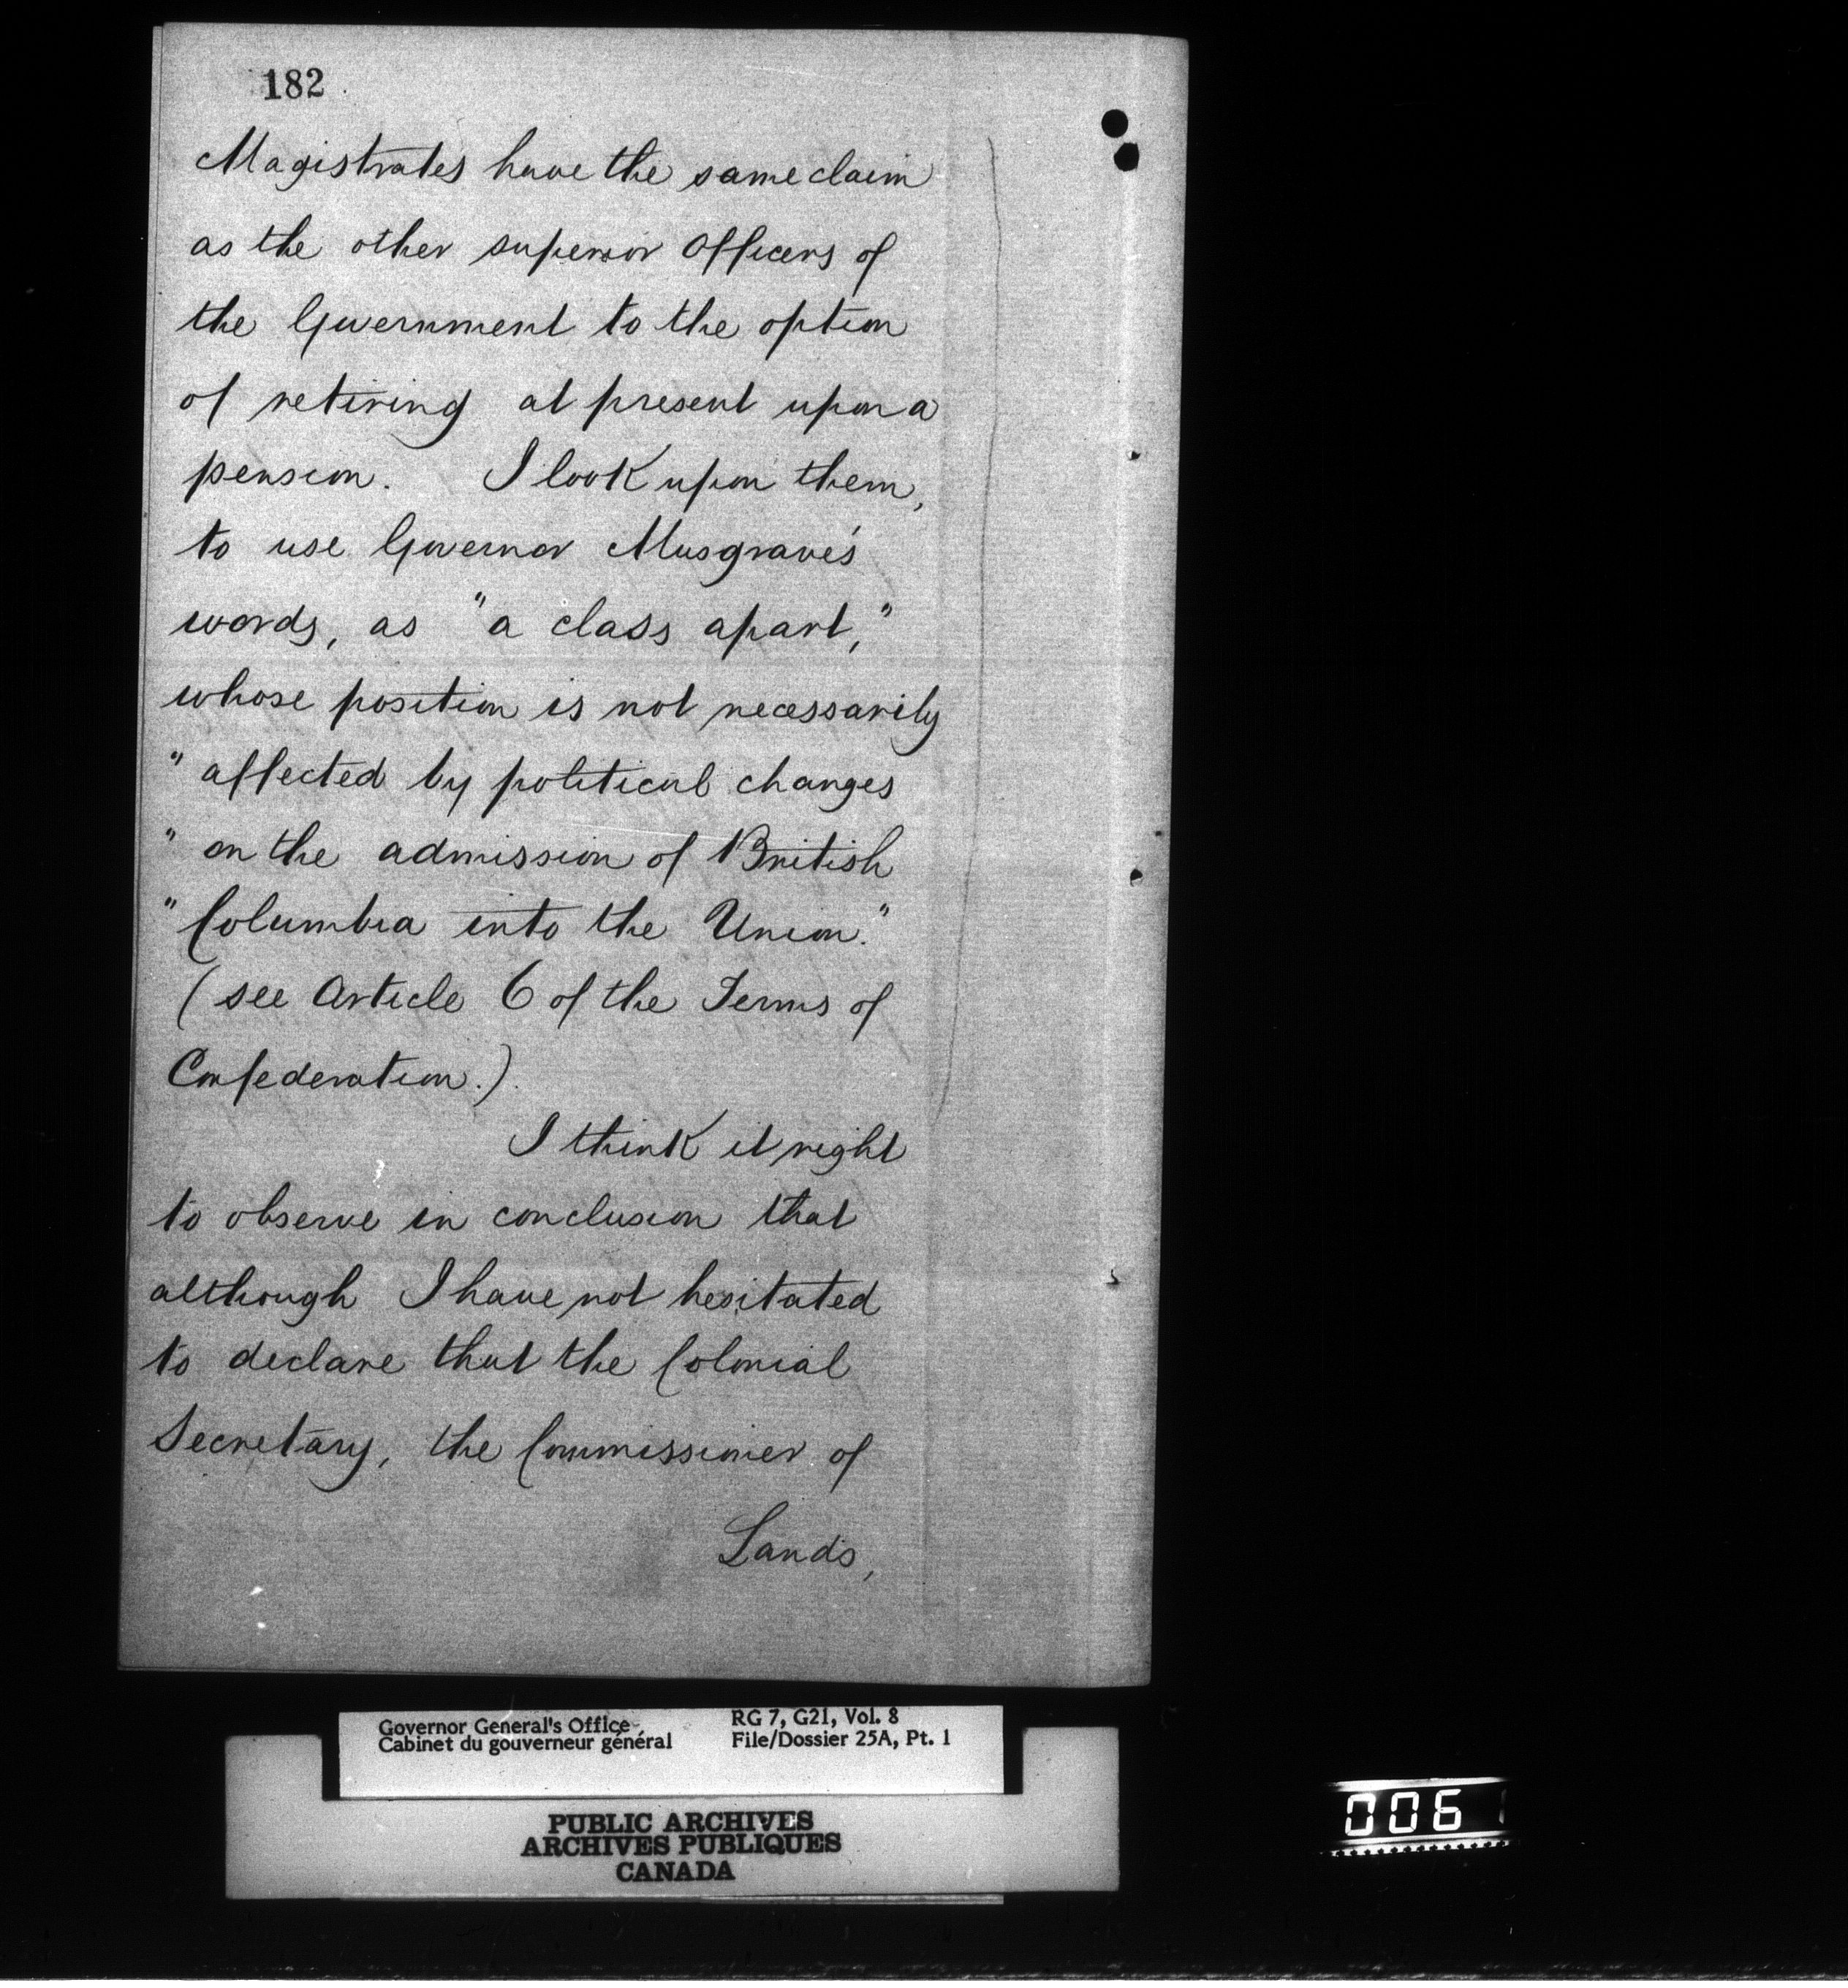 182
Magistrates have the same claim
as the other superior Officers of
the Government to the option
of retiring at present upon a
pension. I look upon them,
to use Governor Musgrave's
words, as "a class apart,"
whose position is not necessarily
" affected by political changes
" on the admission of British
" Columbia into the Union."
(see Article 6 of the Terms of
Confederation.)
I think it right
to observe in conclusion that
although I have not hesitated
to declare that the Colonial
Secretary, the Commissioner of
Lands,
Governor General's Office
Cabinet du gouverneur général
RG 7, G21, Vol. 8
File/Dossier 25A, Pt. 1
PUBLIC ARCHIVES
ARCHIVES PUBLIQUES
CANADA
0061